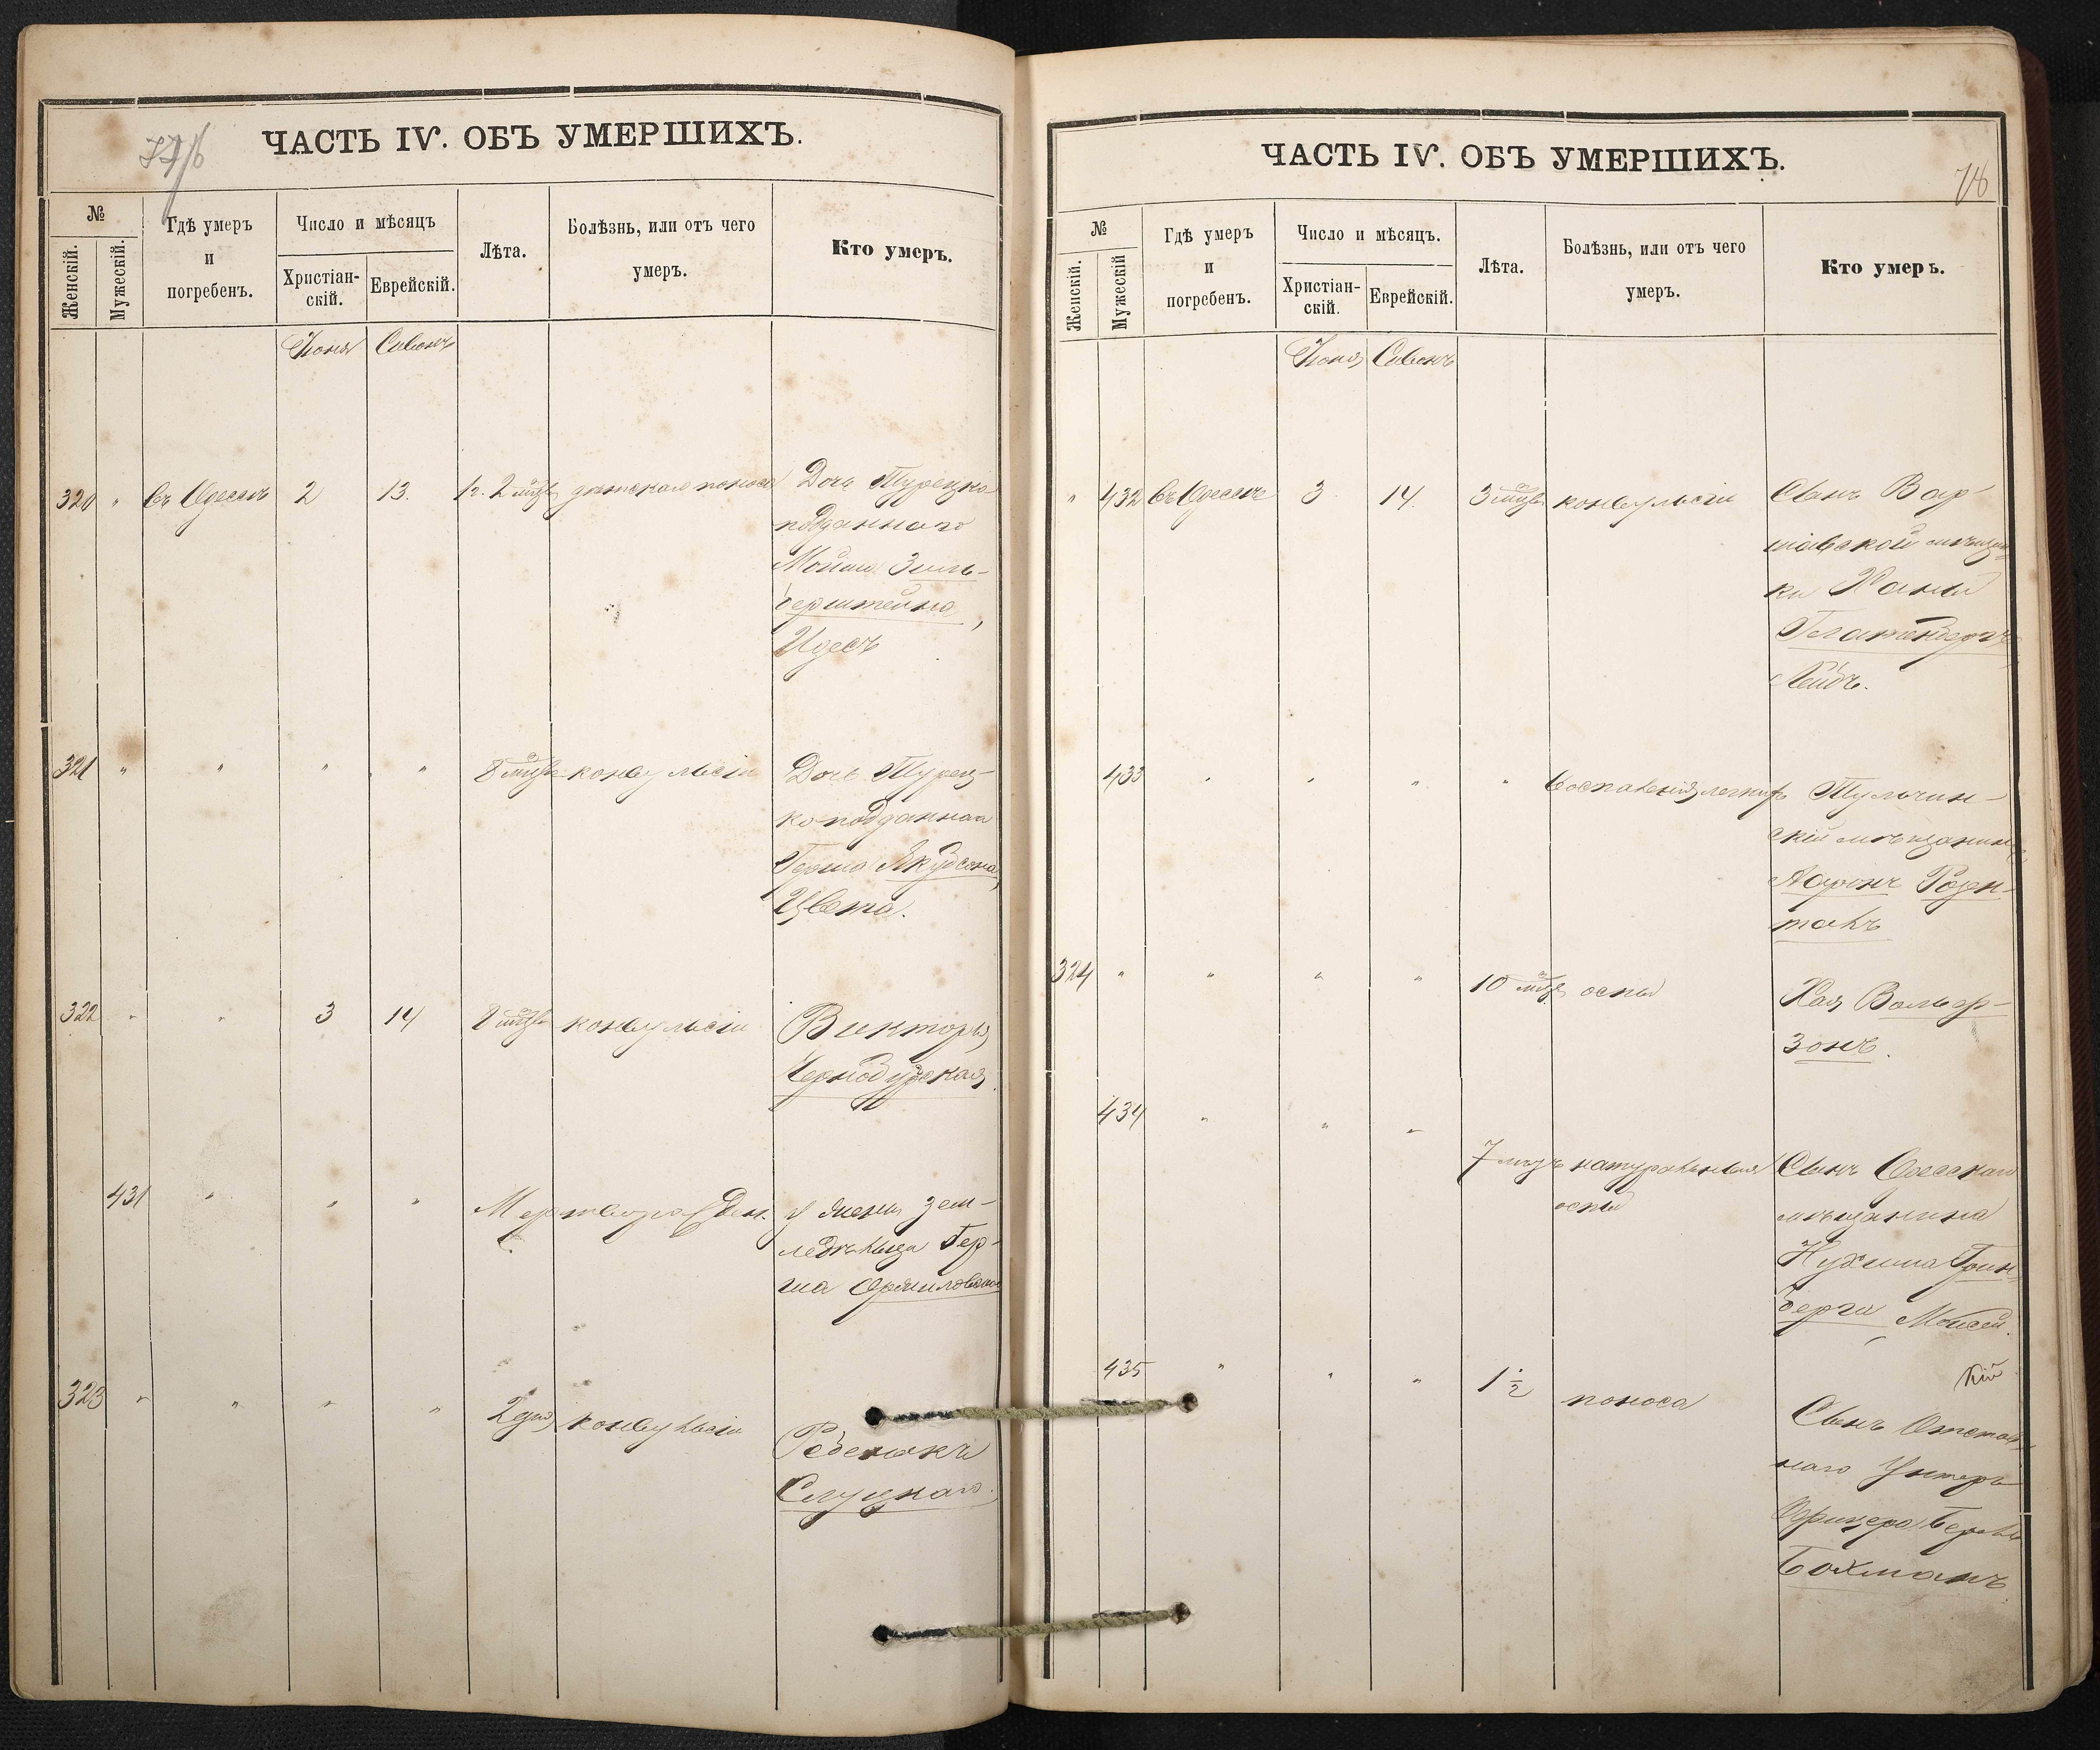 77/б
ЧАСТЬ IV. ОБЪ УМЕРШИХЪ.
№
Женскій.
Мужескій.
Гдѣ умеръ
и
погребенъ.
Число и мѣсяцъ
Христіан-
скій.
Еврейскій.
Лѣта.
Болѣзнь, или отъ чего
умеръ.
Кто умеръ.
Іюня Сивонъ
320 " Въ Одессѣ 2 13. 1 г. 2 мѣс дѣтскаго поноса Дочь Турецко
подданнаго
Мойши Зиль-
берштейна,
Идесъ
321 " " " " 8 мѣс конвульсіи Дочь Турец-
коподданнаго
Герша Якубсона,
Цвета.
322 " " 3 14 8 мѣс конвульсіи Викторія
Чернобудская.
431 " " " Мертворожден. у жены зем-
ледѣльца Гер-
ша
323 " " " " 2 дня конвульсіи Ребенокъ
Слуцкаго.
ЧАСТЬ IV. ОБЪ УМЕРШИХЪ.
78
№
Женскій.
Мужескій
Гдѣ умеръ
и
погребенъ.
Число и мѣсяцъ.
Христіан-
скій.
Еврейскій.
Лѣта.
Болѣзнь, или отъ чего
умеръ.
Кто умеръ.
Іюня Сивонъ
" 432 Въ Одессѣ 3 14 3 мѣс конвульсіи Сынъ Вар-
шавской мѣщан-
ки Ханы
Глатенбергъ,
Лейбъ.
433 " " " " воспаленія легкихъ Тульчин-
скій мѣщанинъ
Ааронъ Розен-
таль
324 " " " " 10 мѣс оспы Хая Вольф-
зонъ.
434 " " " 7 мѣс натуральныя Сынъ Одесскаго
оспы мѣщанина
Нухима Грин-
берга Мойсей.
435 " " " 1 1/2 поноса
Сынъ Отстав-
наго Унтеръ
Офицера Берки
Бохманъ